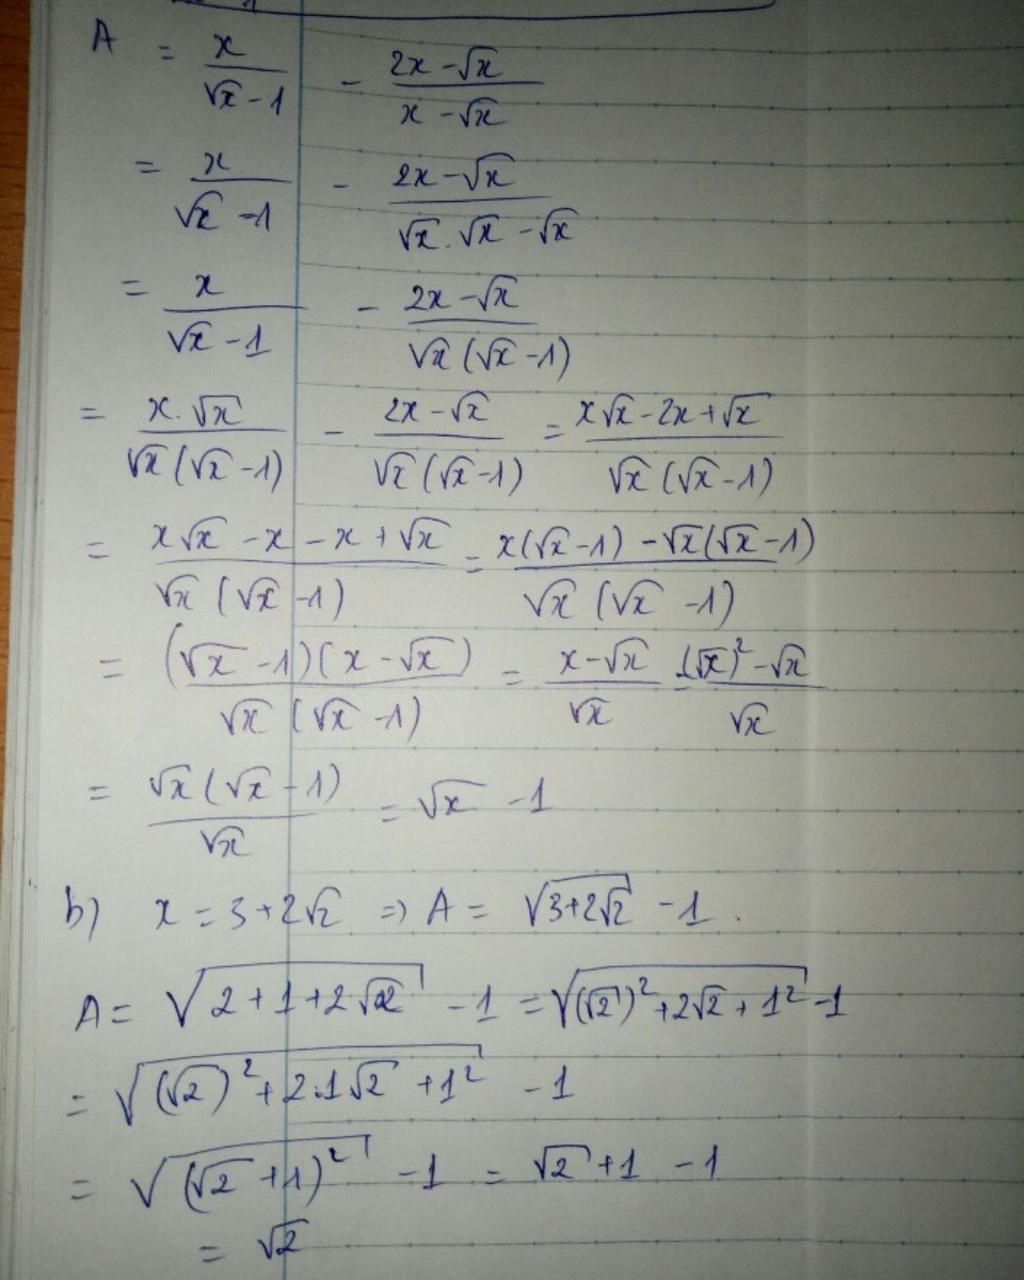 A = x/(√x - 1) - (2x - √x)/(x - √x)
= x/(√x - 1) - (2x - √x)/(√x . √x - √x)
= x/(√x - 1) - (2x - √x)/(√x (√x - 1))
= (x . √x)/(√x (√x - 1)) - (2x - √x)/(√x (√x - 1)) = (x√x - 2x + √x)/(√x (√x - 1))
= (x√x - x - x + √x)/(√x (√x - 1)) = (x(√x - 1) - √x(√x - 1))/(√x (√x - 1))
= ((√x - 1)(x - √x))/(√x (√x - 1)) = (x - √x)/√x = ((√x)² - √x)/√x
= (√x (√x - 1))/√x = √x - 1
b) x = 3 + 2√2 => A = √(3+2√2) - 1 .
A = √(2 + 1 + 2√2) - 1 = √((√2)² + 2√2 + 1²) - 1
= √((√2)² + 2.1√2 + 1²) - 1
= √((√2 + 1)²) - 1 = √2 + 1 - 1
= √2